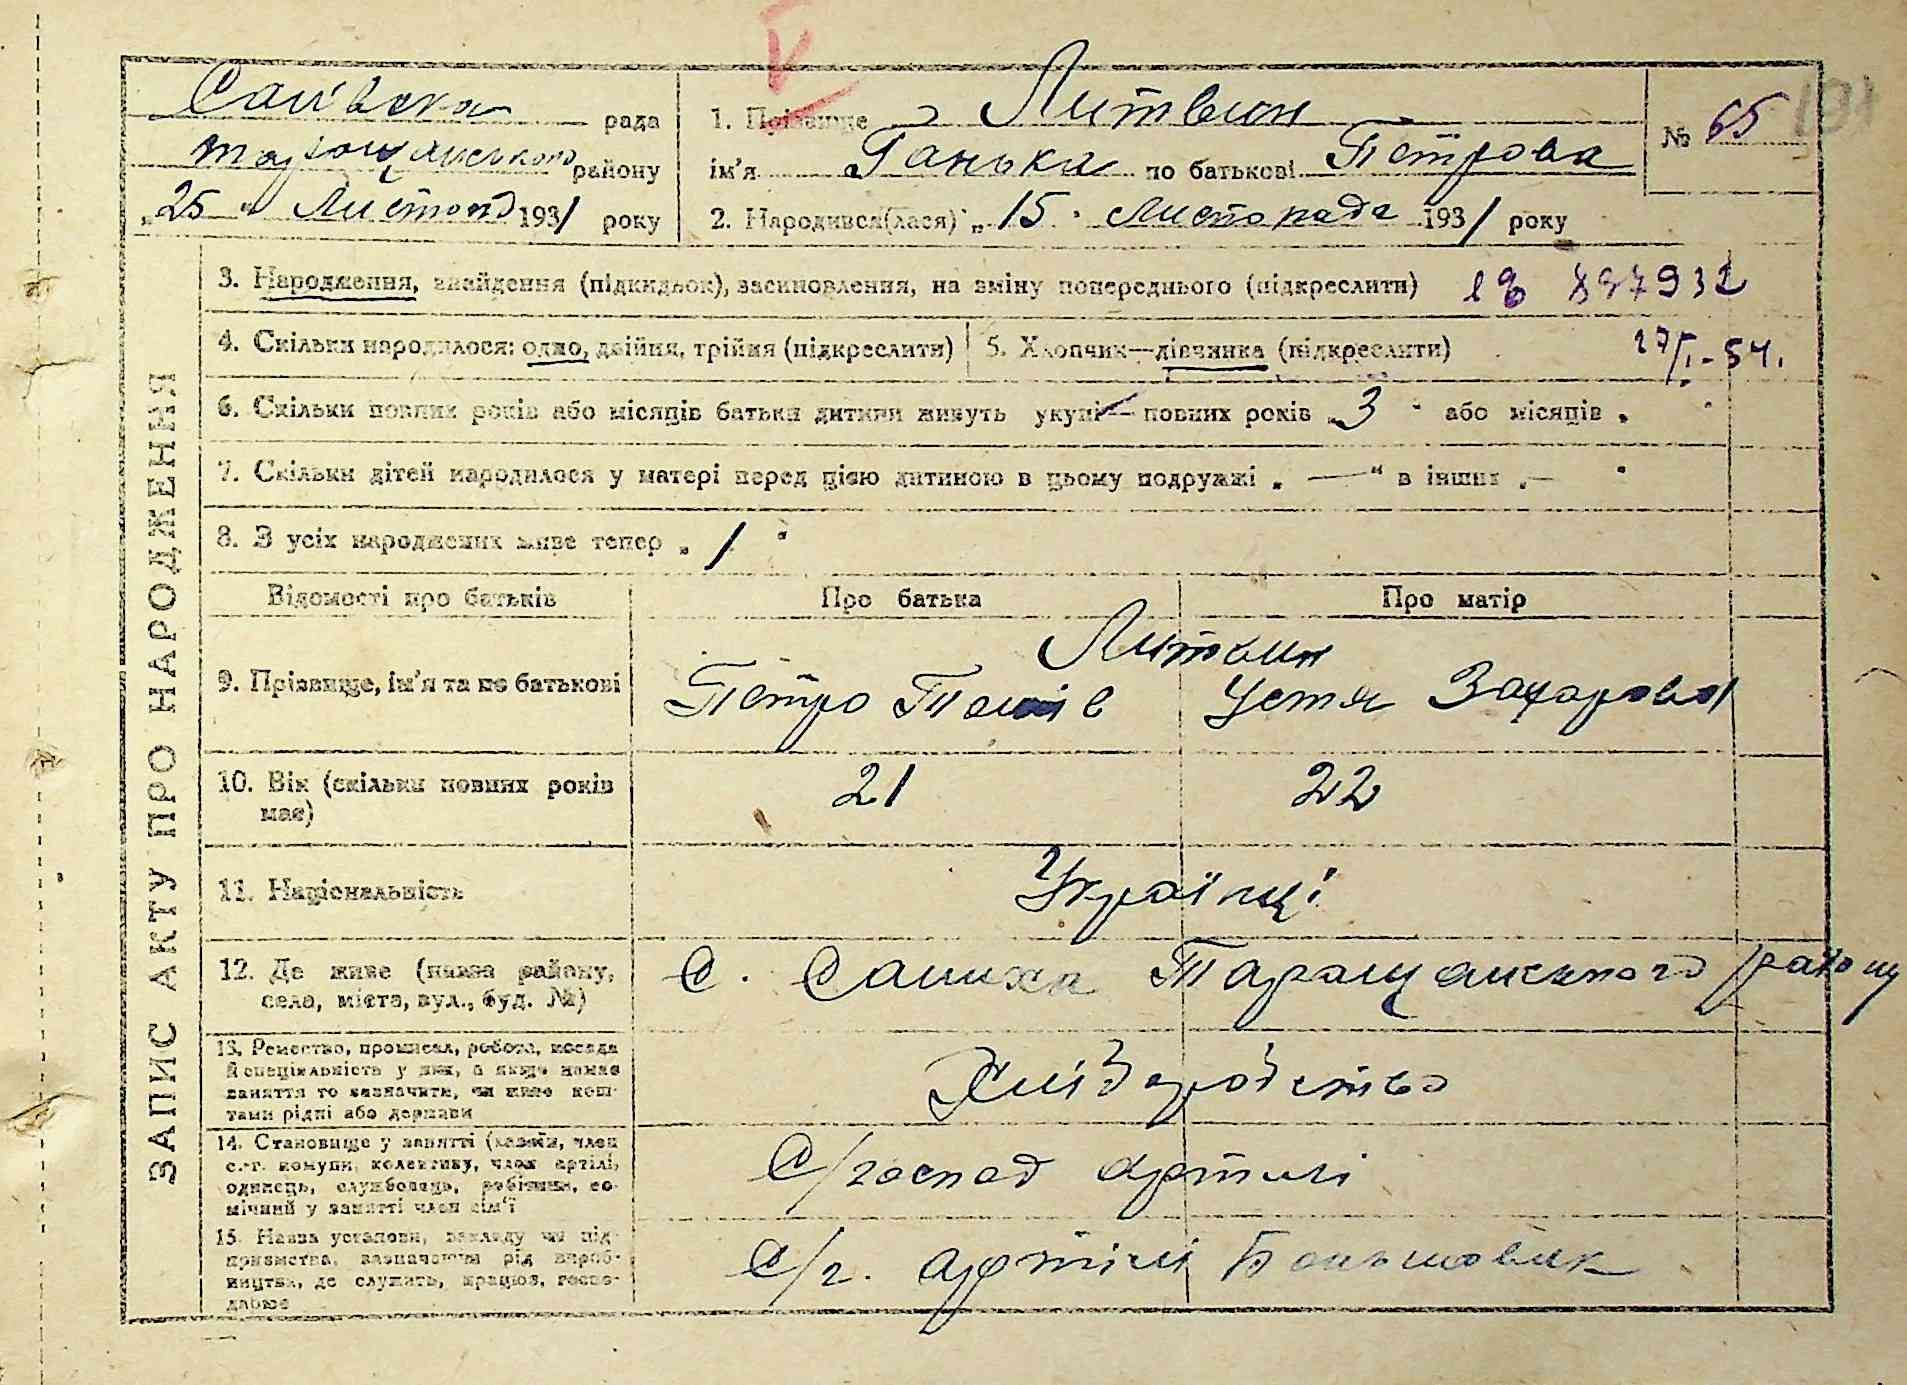 рада
району
„25 " Листопд 1931 року
1. Прізвище Литвин
ім'я Ганька по батькові Петрова
2. Народився(лася) „15 " Листопада 1931 року
№ 65
3. Народження, знайдення (підкидьок), засиновлення, на зміну попереднього (підкреслити) 897932
4. Скільки народилося: одно, двійня, трійня (підкреслити) 5. Хлопчик—дівчинка (підкреслити) 27/I-54.
6. Скільки повних років або місяців батьки дитини живуть укупі— повних років „3 " або місяців „ "
7. Скільки дітей народилося у матері перед цією дитиною в цьому подружжі „ — " в інших „— "
8. З усіх народжених живе тепер „ 1 "
ЗАПИС АКТУ ПРО НАРОДЖЕННЯ
Відомості про батьків Про батька Про матір
Литвин
9. Прізвище, ім'я та по батькові Петро Устя Захарова
10. Вік (скільки повних років 21 22
має)
11. Національність Українці
12. Де живе (назва району, С. Таращанського району
село, місто, вул., буд. №)
13. Ремество, промисел, робота, посада
й спеціяльність у них, а якщо немає
заняття то зазначити, чи живе кош-
тами рідні або держави
Хліборобство
14. Становище у занятті (хазяїн, член
с.-г. комуни, колективу, член артілі,
одинець, службовець, робітник, по-
мічний у занятті член сім'ї
С/господ артилі
15. Назва установи, закладу чи під-
приємства, зазначення рід вироб-
ництва, де служить, працює, госпо-
дарює
С/г. артілі Большовик